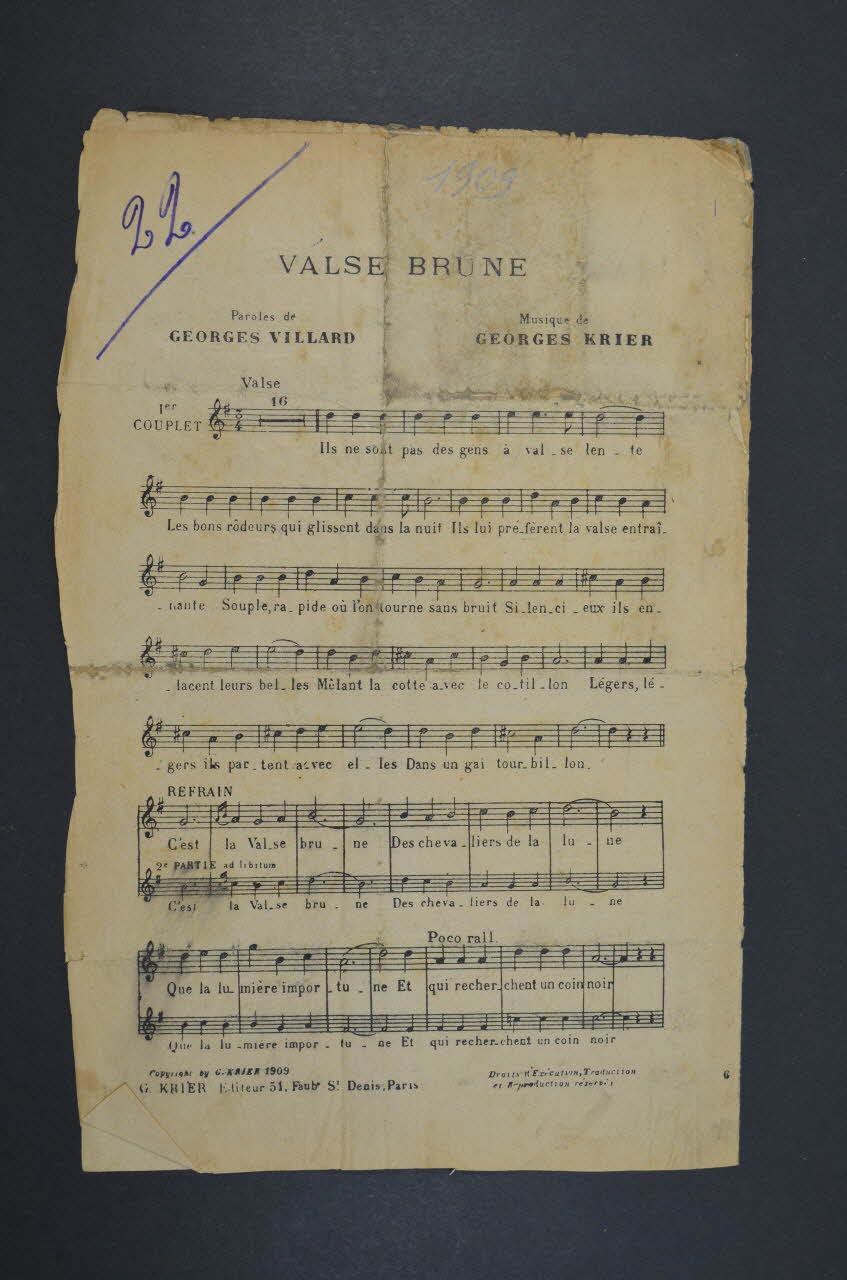 1909
22
VALSE BRUNE
Paroles de
GEORGES VILLARD
Musique de
GEORGES KRIER
Valse
16
1er COUPLET
3/4
Ils ne sont pas des gens à val_se len_te
Les bons rôdeurs qui glissent dans la nuit Ils lui pré_fèrent la valse entraî_
_nante Souple, ra_pide où l'on tourne sans bruit Si_len_ci_eux ils en_
_lacent leurs bel_les Mêlant la cotte a_vec le co_til_lon Légers, lé_
_gers ils par_tent avec el_les Dans un gai tour_bil_lon.
REFRAIN
C'est la Val_se bru_ne Des cheva_liers de la lu_ne
2e PARTIE ad libitum
C'est la Val_se bru_ne Des cheva_liers de la lu_ne
Poco rall.
Que la lu_mière impor_tu_ne Et qui recher_chent un coin noir
Que la lu_mière impor_tu_ne Et qui recher_chent un coin noir
Copyright by G. KRIER 1909
G. KRIER Editeur 51, Faubg St Denis, Paris
Droits d'Exécution, Traduction
et Reproduction réservés
6